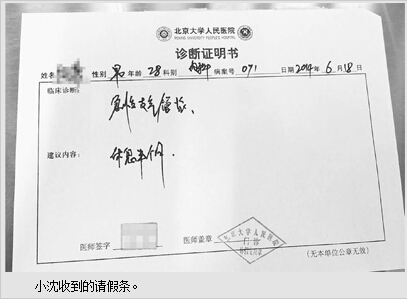 北京大学人民医院
PEKING UNIVERSITY PEOPLE'S HOSPITAL
诊断证明书
姓名 性别 男 年龄 28 科别 内科 病案号 071 日期 2014年6月18日
临床诊断:
急性支气管炎、
建议内容:
休息半个月.
医师签字 医师盖章 (无本单位公章无效)
北京大学人民医院
小沈收到的请假条。